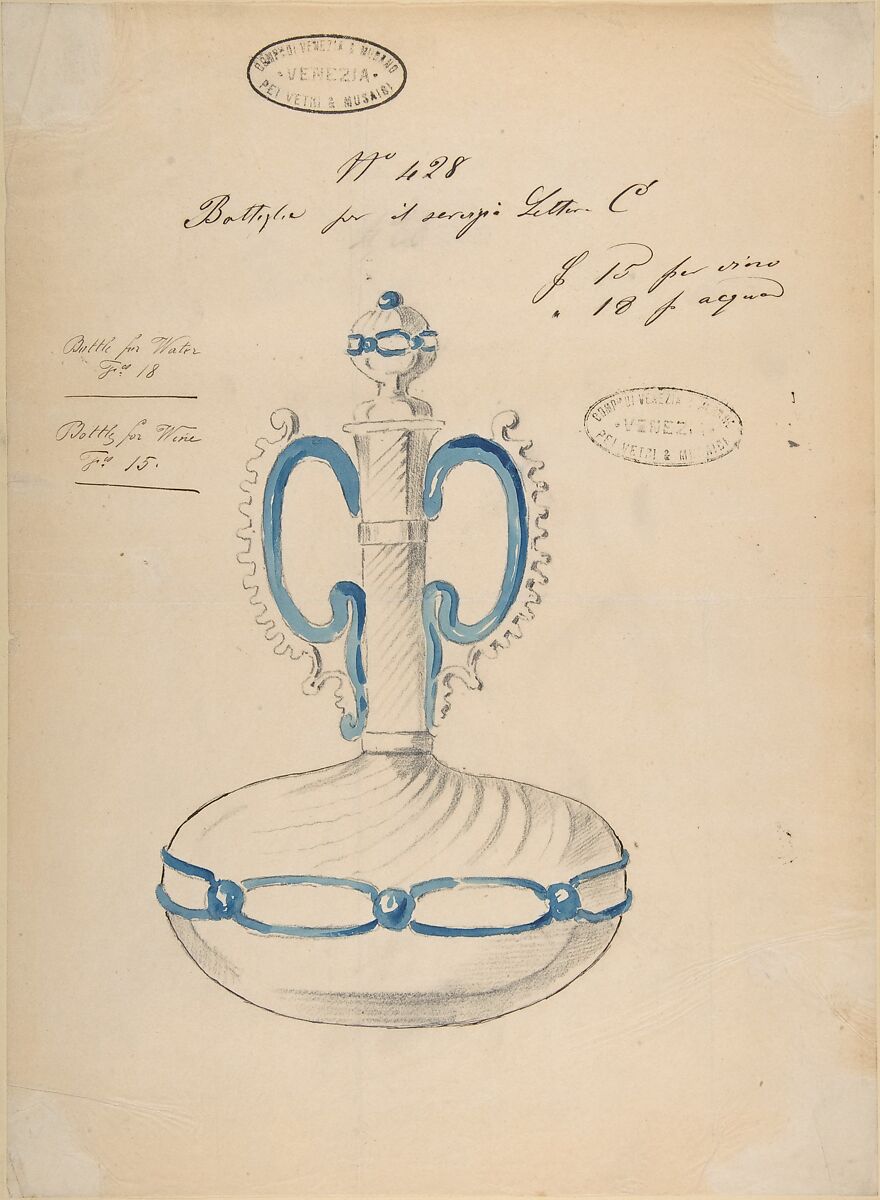 COMPᴬ DI VENEZIA & MURANO
· VENEZIA ·
PEI VETRI & MUSAICI
Nº 428
Bottiglie per il servizio Lettera C
15 per vino
" 18 p acqua
Bottle for Water
Fcs 18
Bottle for Wine
Fcs 15.
COMPᴬ DI VENEZIA & MURANO
· VENEZIA ·
PEI VETRI & MUSAICI